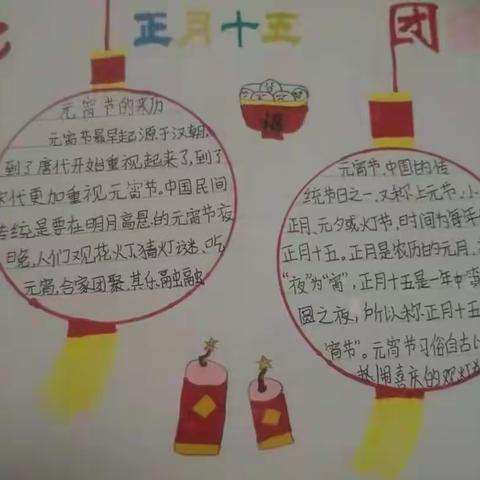 正月十五
团
福
元宵节的来历
元宵节最早起源于汉朝,
到了唐代开始重视起来了,到了
宋代更加重视元宵节。中国民间
传统是要在明月高悬的元宵节夜
晚,人们观花灯、猜灯谜、吃
元宵,合家团聚,其乐融融
元宵节,中国的传
统节日之一,又称上元节、小
正月、元夕或灯节,时间为每年
正月十五。正月是农历的元月,
"夜"为"宵",正月十五是一年中第
圆之夜,所以称正月十五
"宵节"。元宵节习俗自古
热闹喜庆的观灯